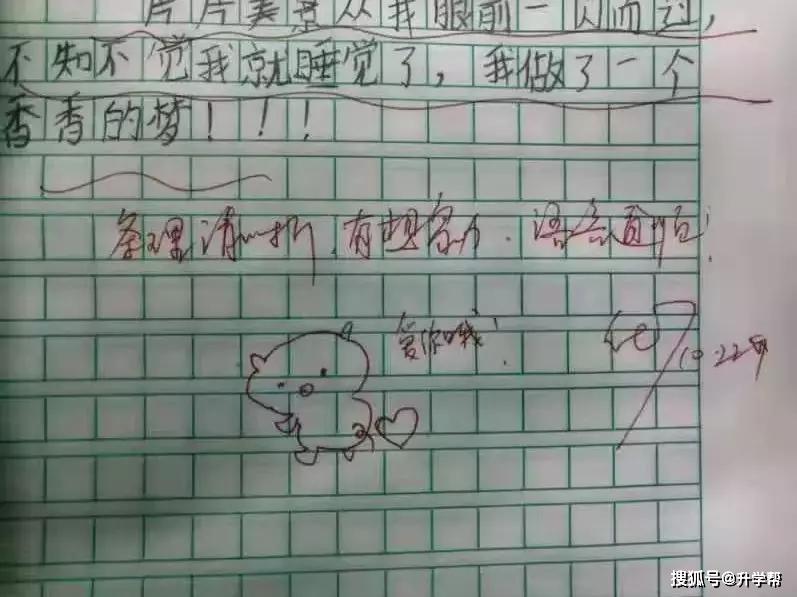 片片美景从我眼前一闪而过,
不知不觉我就睡觉了,我做了一个
香香的梦!!!
条理清晰.有想象力.语言直白!
爱你哦!
10.22
搜狐号@升学帮